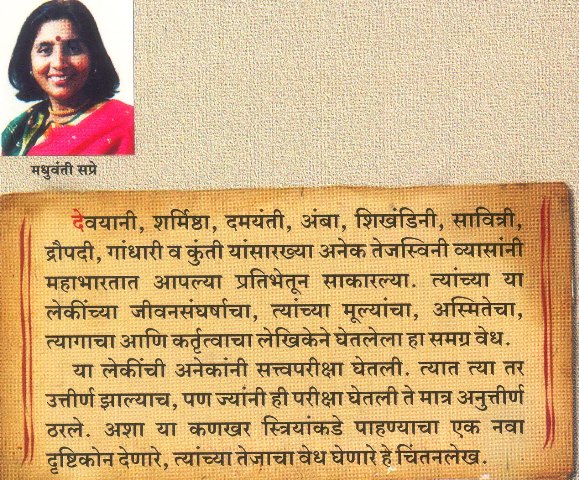 मधुवंती सप्रे
देवयानी, शर्मिष्ठा, दमयंती, अंबा, शिखंडिनी, सावित्री,
द्रौपदी, गांधारी व कुंती यांसारख्या अनेक तेजस्विनी व्यासांनी
महाभारतात आपल्या प्रतिभेतून साकारल्या. त्यांच्या या
लेकींच्या जीवनसंघर्षाचा, त्यांच्या मूल्यांचा, अस्मितेचा,
त्यागाचा आणि कर्तृत्वाचा लेखिकेने घेतलेला हा समग्र वेध.
या लेकींची अनेकांनी सत्त्वपरीक्षा घेतली. त्यात त्या तर
उत्तीर्ण झाल्याच, पण ज्यांनी ही परीक्षा घेतली ते मात्र अनुत्तीर्ण
ठरले. अशा या कणखर स्त्रियांकडे पाहण्याचा एक नवा
दृष्टिकोन देणारे, त्यांच्या तेजाचा वेध घेणारे हे चिंतनलेख.